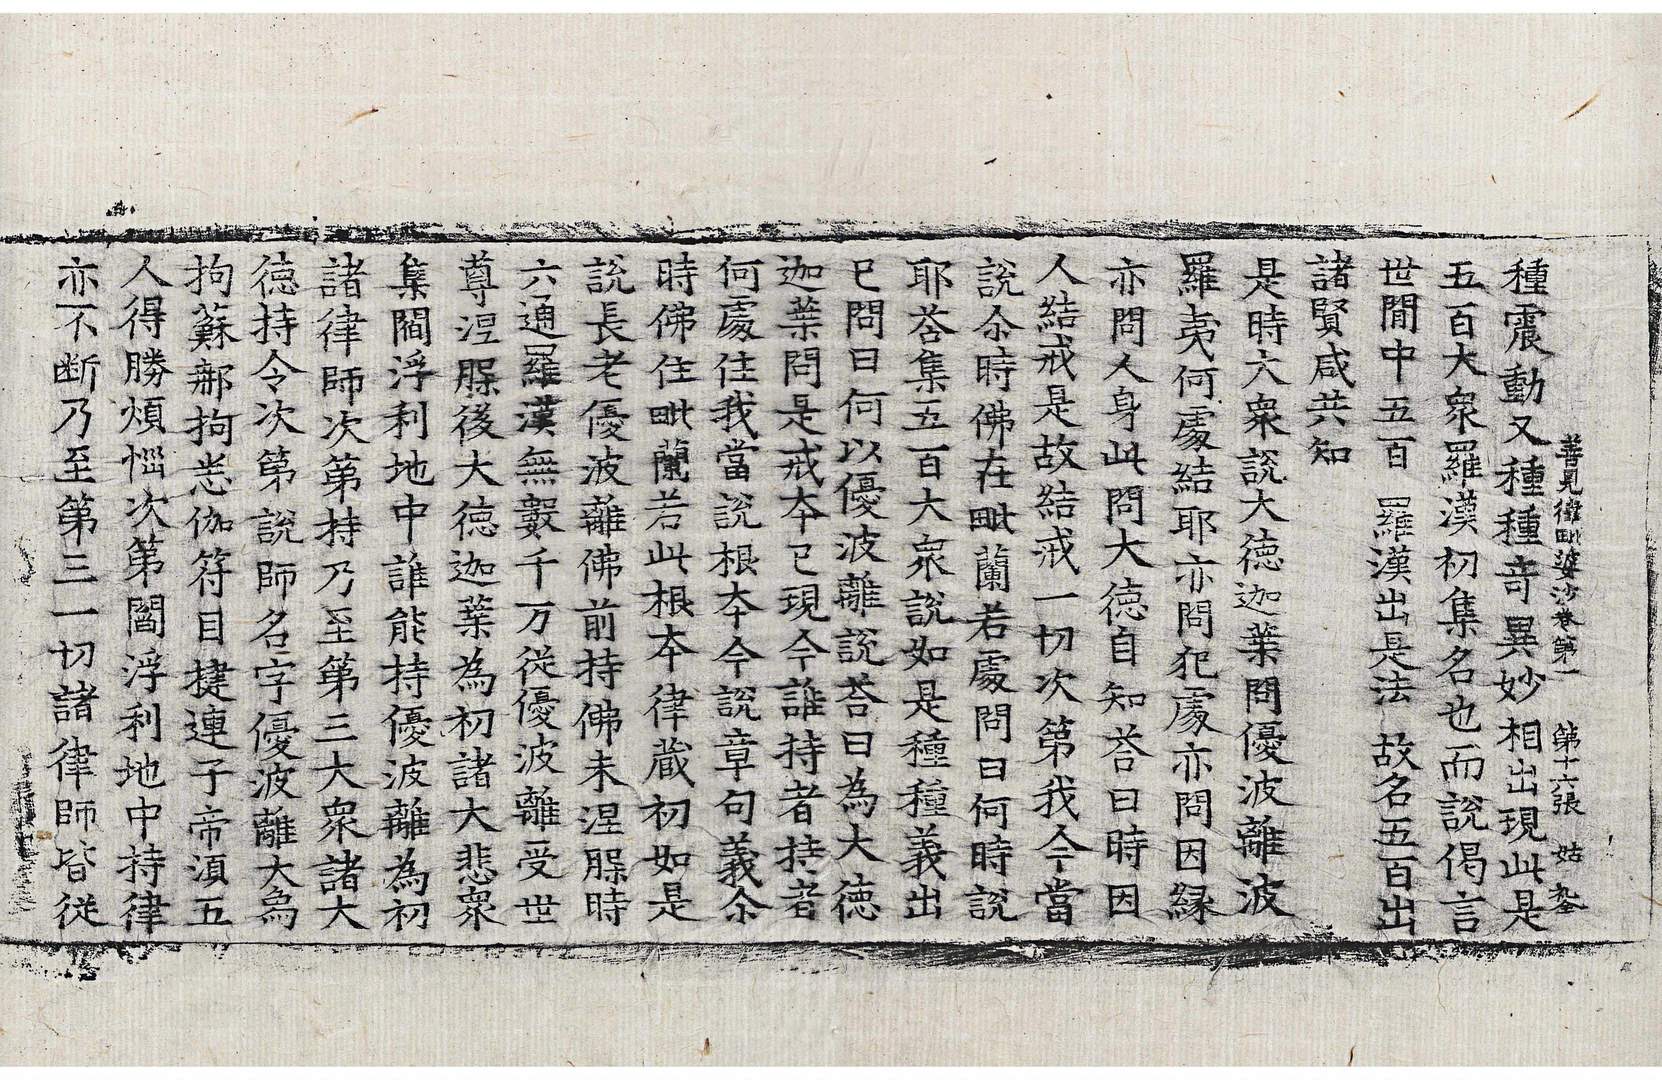 善見律毗婆沙卷第一　第十六張　姑
種震動又種種竒異妙相出現此是
五百大衆羅漢初集名也而說偈言
世閒中五百　羅漢出是法　故名五百出
諸賢咸共知
是時大衆說大德迦葉問優波離波
羅夷何處結耶亦問犯處亦問因縁
亦問人身此問大德自知荅曰時因
人結戒是故結戒一切次第我今當
說尒時佛在毗蘭若處問曰何時說
耶荅集五百大衆說如是種種義出
已問曰何以優波離說荅曰為大德
迦葉問是戒夲已現今誰持者持者
何處住我當說根夲今說章句義尒
時佛住毗蘭若此根夲律藏初如是
說長老優波離佛前持佛未涅䐗時
六通羅漢無數千万從優波離受世
尊涅䐗後大德迦葉為初諸大悲衆
集閻浮利地中誰能持優波離為初
諸律師次第持乃至第三大衆諸大
德持令次第說師名字優波離大為
拘蘇那拘悉伽符目揵連子帝湏五
人得勝煩惱次第閻浮利地中持律
亦不断乃至第三一切諸律師皆從